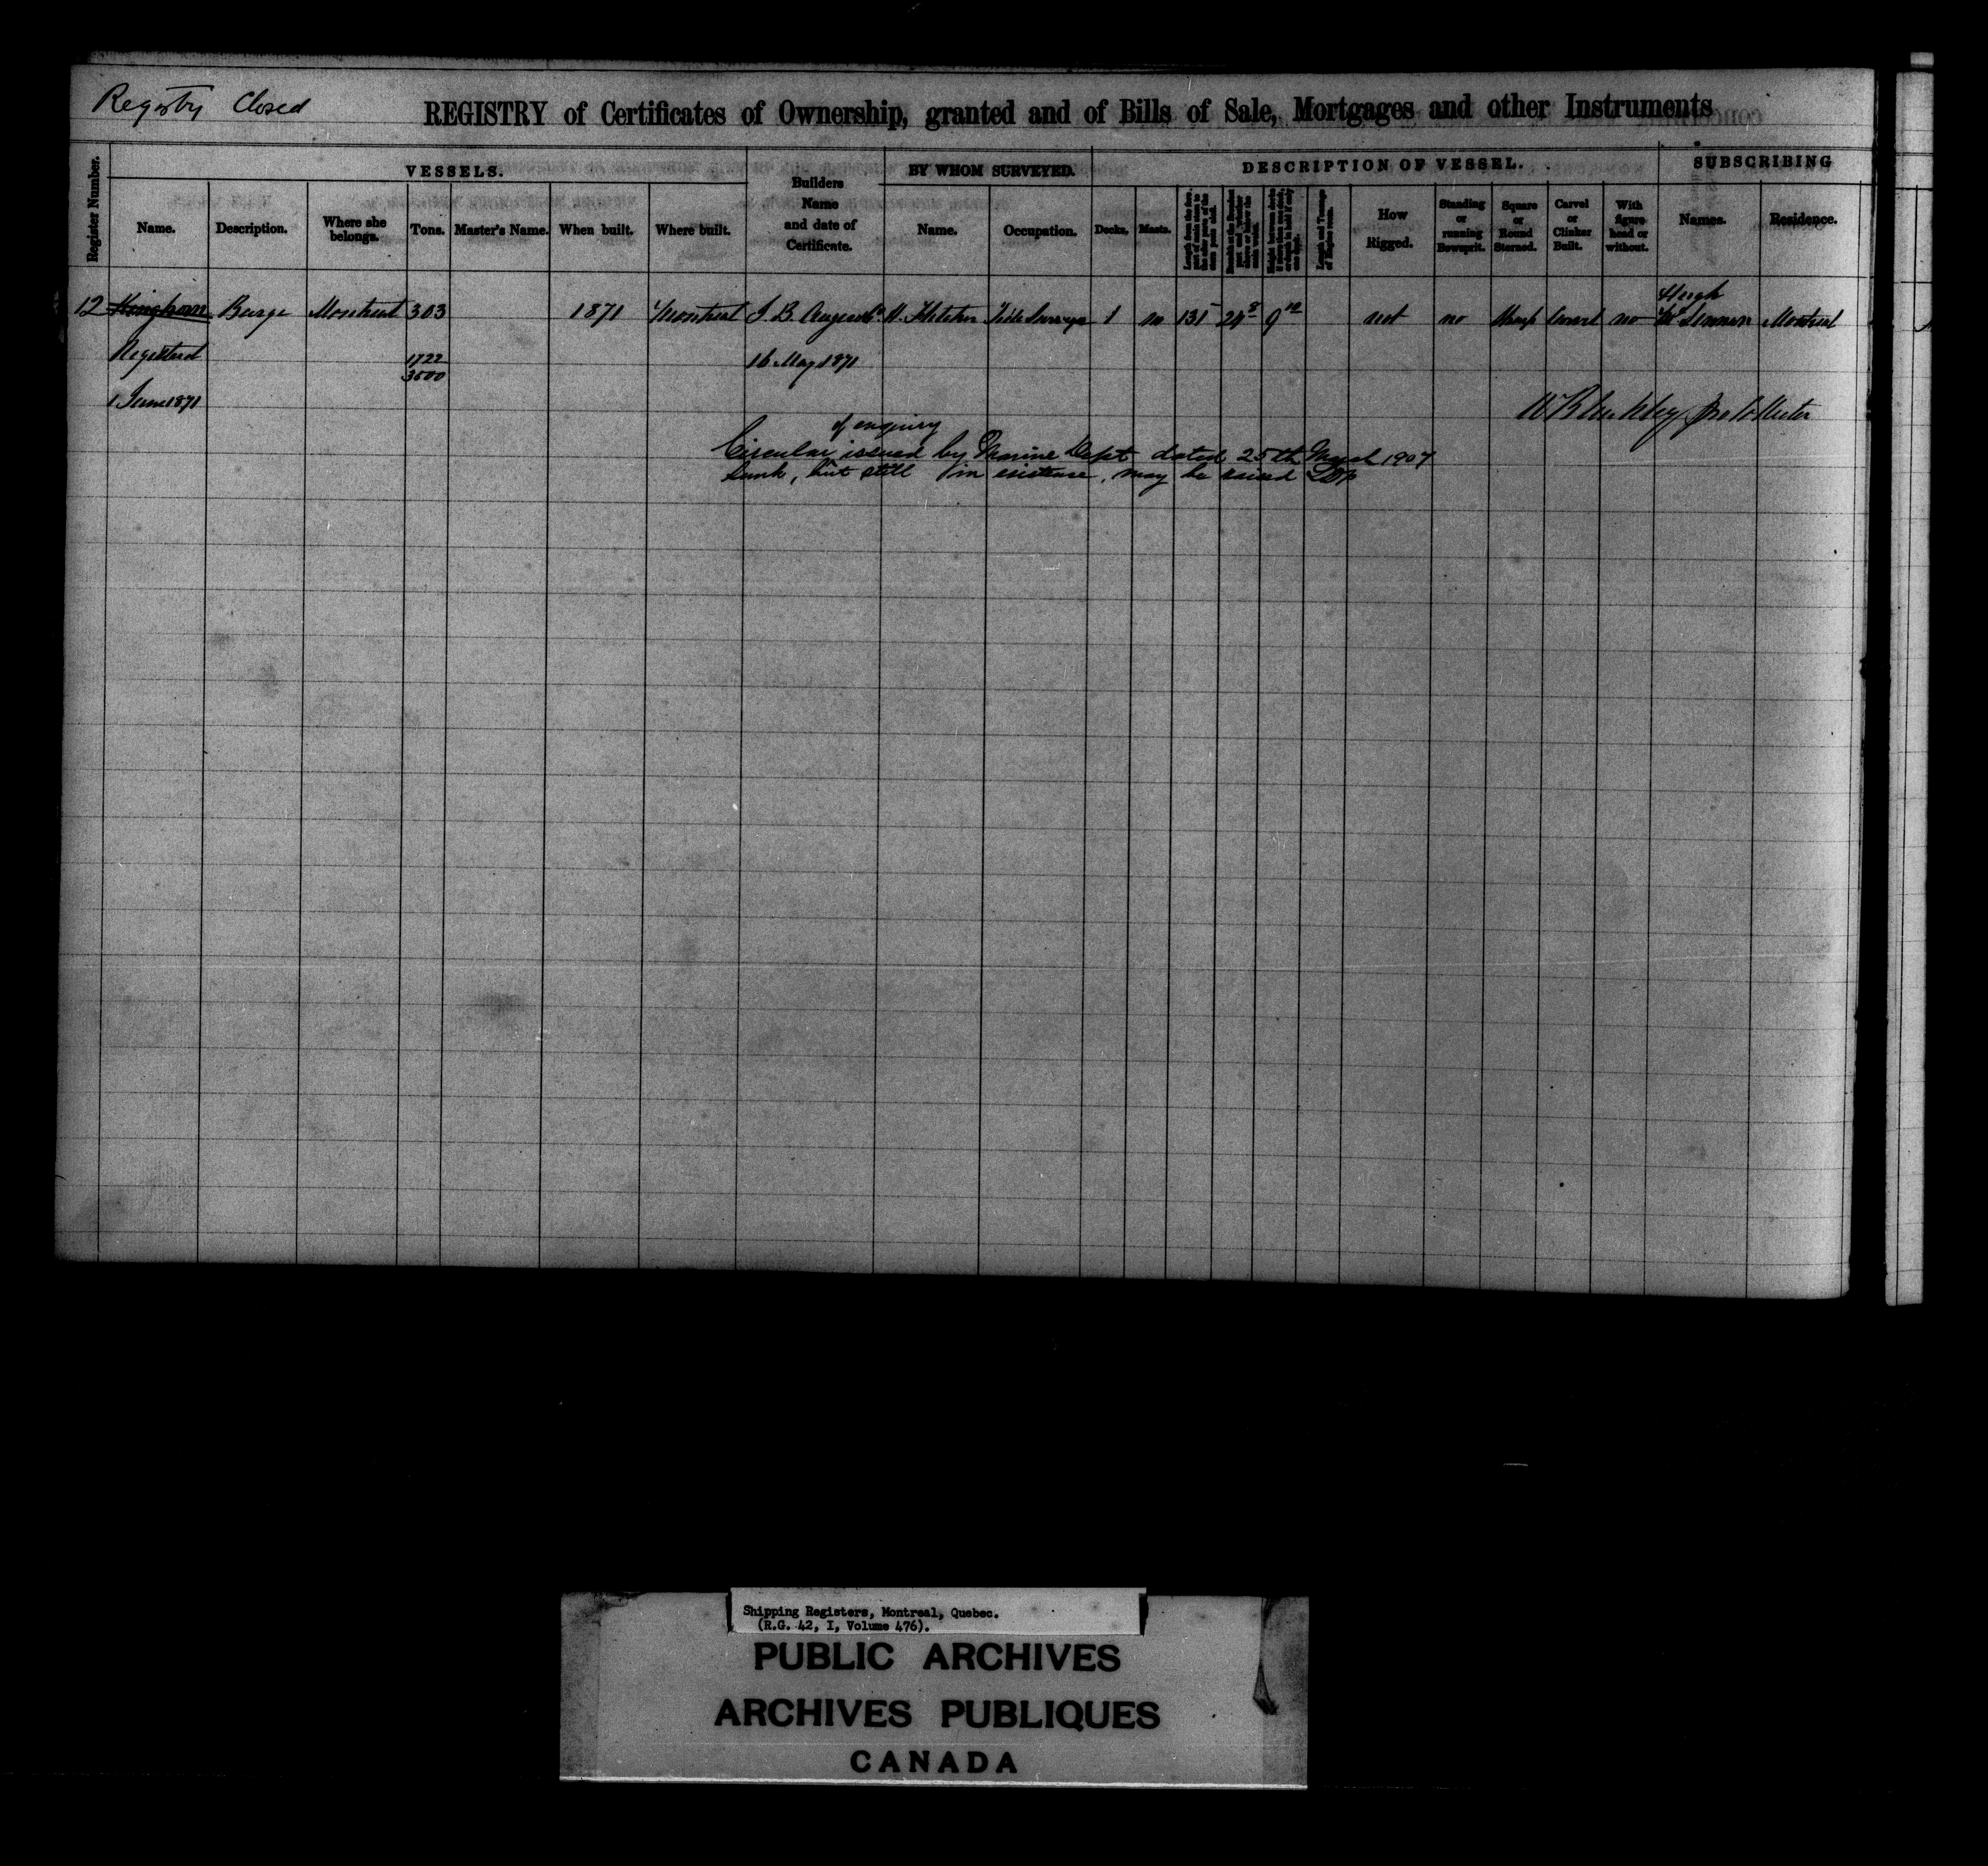 Registry Closed
REGISTRY of Certificates of Ownership, granted and of Bills of Sale, Mortgages and other Instruments
Register Number.
VESSELS.
Builders Name and date of Certificate.
BY WHOM SURVEYED.
DESCRIPTION OF VESSEL.
SUBSCRIBING
Name. Description. Where she belongs. Tons. Master's Name. When built. Where built. Name. Occupation. Decks. Masts. How Rigged. Standing or running Bowsprit. Square or Round Sterned. Carvel or Clinker Built. With figure head or without. Names. Residence.
12 Kinghorn Barge Montreal 303 1871 Montreal J. B. Auger no 135 9 not no Sharp Carvel no Hugh McLennan Montreal
Registered 1722/3500 16 May 1871
1 June 1871
of enquiry
Circular issued by Marine Dept dated 25th March 1907
Sunk, but still in existence, may be raised
Shipping Registers, Montreal, Quebec.
(R.G. 42, I, Volume 476).
PUBLIC ARCHIVES
ARCHIVES PUBLIQUES
CANADA